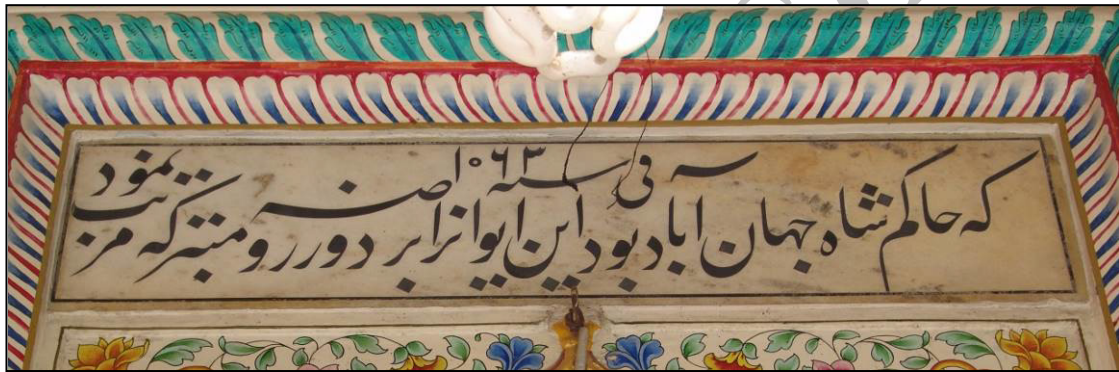 که حاکم شاه جهان آباد بود این ایوانرا بر دور روضه متبرکه مرتب نمود
فی سنه ۱۰۶۳